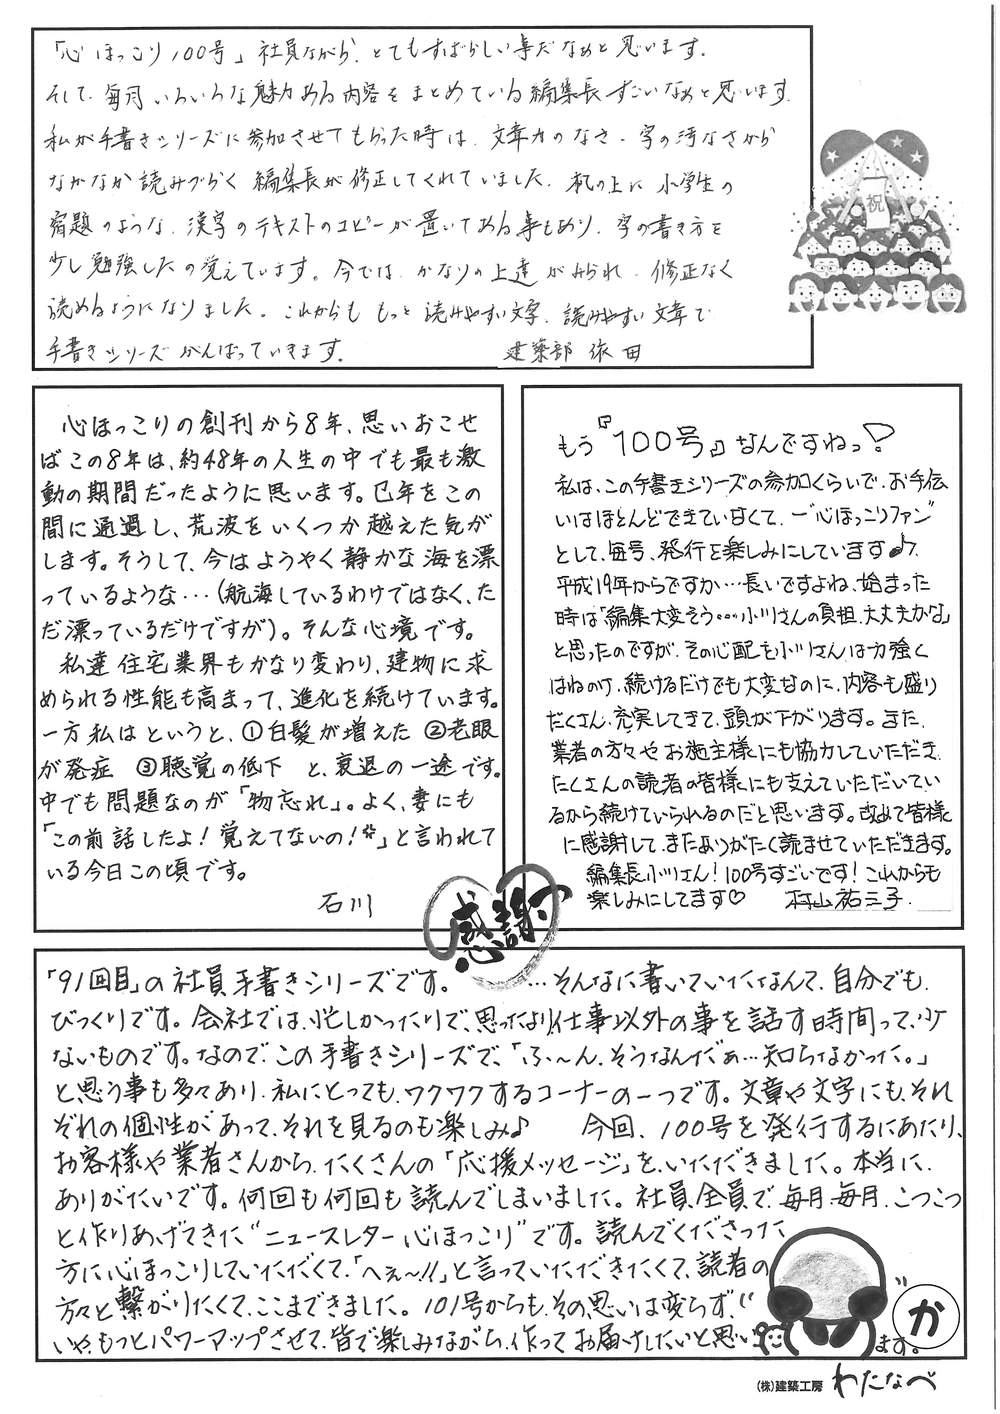 「心ほっこり100号」社員ながら、とてもすばらしい事だなぁと思います。
そして、毎月いろいろな魅力ある内容をまとめている編集長すごいなぁと思います。
私が手書きシリーズに参加させてもらった時は、文章力のなさ・字の汚なさから
なかなか読みづらく編集長が修正してくれていました。机の上に小学生の
宿題のような、漢字のテキストのコピーが置いてある事もあり、字の書き方を
少し勉強したの覚えています。今では、かなりの上達がみられ、修正なく
読めるようになりました。これからももっと読みやすい文字、読みやすい文章で
手書きシリーズがんばっていきます。
建築部 依田
祝
心ほっこりの創刊から8年、思いおこせ
ばこの8年は、約48年の人生の中でも最も激
動の期間だったように思います。巳年をこの
間に通過し、荒波をいくつか越えた気が
します。そうして、今はようやく静かな海を漂
っているような…(航海しているわけではなく、た
だ漂っているだけですが)。そんな心境です。
私達住宅業界もかなり変わり、建物に求
められる性能も高まって、進化を続けています。
一方私はというと、①白髪が増えた ②老眼
が発症 ③聴覚の低下 と、衰退の一途です。
中でも問題なのが「物忘れ」。よく、妻にも
「この前話したよ!覚えてないの!」と言われて
いる今日この頃です。
石川
もう『100号』なんですねっ!
私は、この手書きシリーズの参加くらいで、お手伝
いはほとんどできていなくて、一"心ほっこりファン"
として、毎号、発行を楽しみにしています♪
平成19年からですか…長いですよね、始まった
時は「編集大変そう…小川さんの負担、大丈夫かな」
と思ったのですが、その心配も小川さんは力強く
はねのけ、続けるだけでも大変なのに、内容も盛り
だくさん、充実してきて、頭が下がります。また、
業者の方々やお施主様にも協力していただき、
たくさんの読者の皆様にも支えていただいてい
るから続けていられるのだと思います。改めて皆様
に感謝して、またありがたく読ませていただきます。
編集長小川さん!100号すごいです!これからも
楽しみにしてます♡ 村山祐三子
感謝
「91回目」の社員手書きシリーズです。 …そんなに書いていたなんて、自分でも
びっくりです。会社では、忙しかったりで、思ったより仕事以外の事を話す時間って、少
ないものです。なので、この手書きシリーズで、「ふ〜ん、そうなんだぁ…知らなかった。」
と思う事も多々あり、私にとっても、ワクワクするコーナーの一つです。文章や文字にも、それ
ぞれの個性があって、それを見るのも楽しみ♪ 今回、100号を発行するにあたり、
お客様や業者さんから、たくさんの「応援メッセージ」を、いただきました。本当に、
ありがたいです。何回も何回も読んでしまいました。社員全員で、毎月、毎月、こつこつ
と作りあげてきた"ニュースレター心ほっこり"です。読んでくださった
方に心ほっこりしていただくて、「へぇ〜!!」と言っていただきたくて、読者の
方々と繋がりたくて、ここまできました。101号からも、その思いは変らず、
いや、もっとパワーアップさせて、皆で楽しみながら、作ってお届けしたいと思います。
か
(株)建築工房 わたなべ